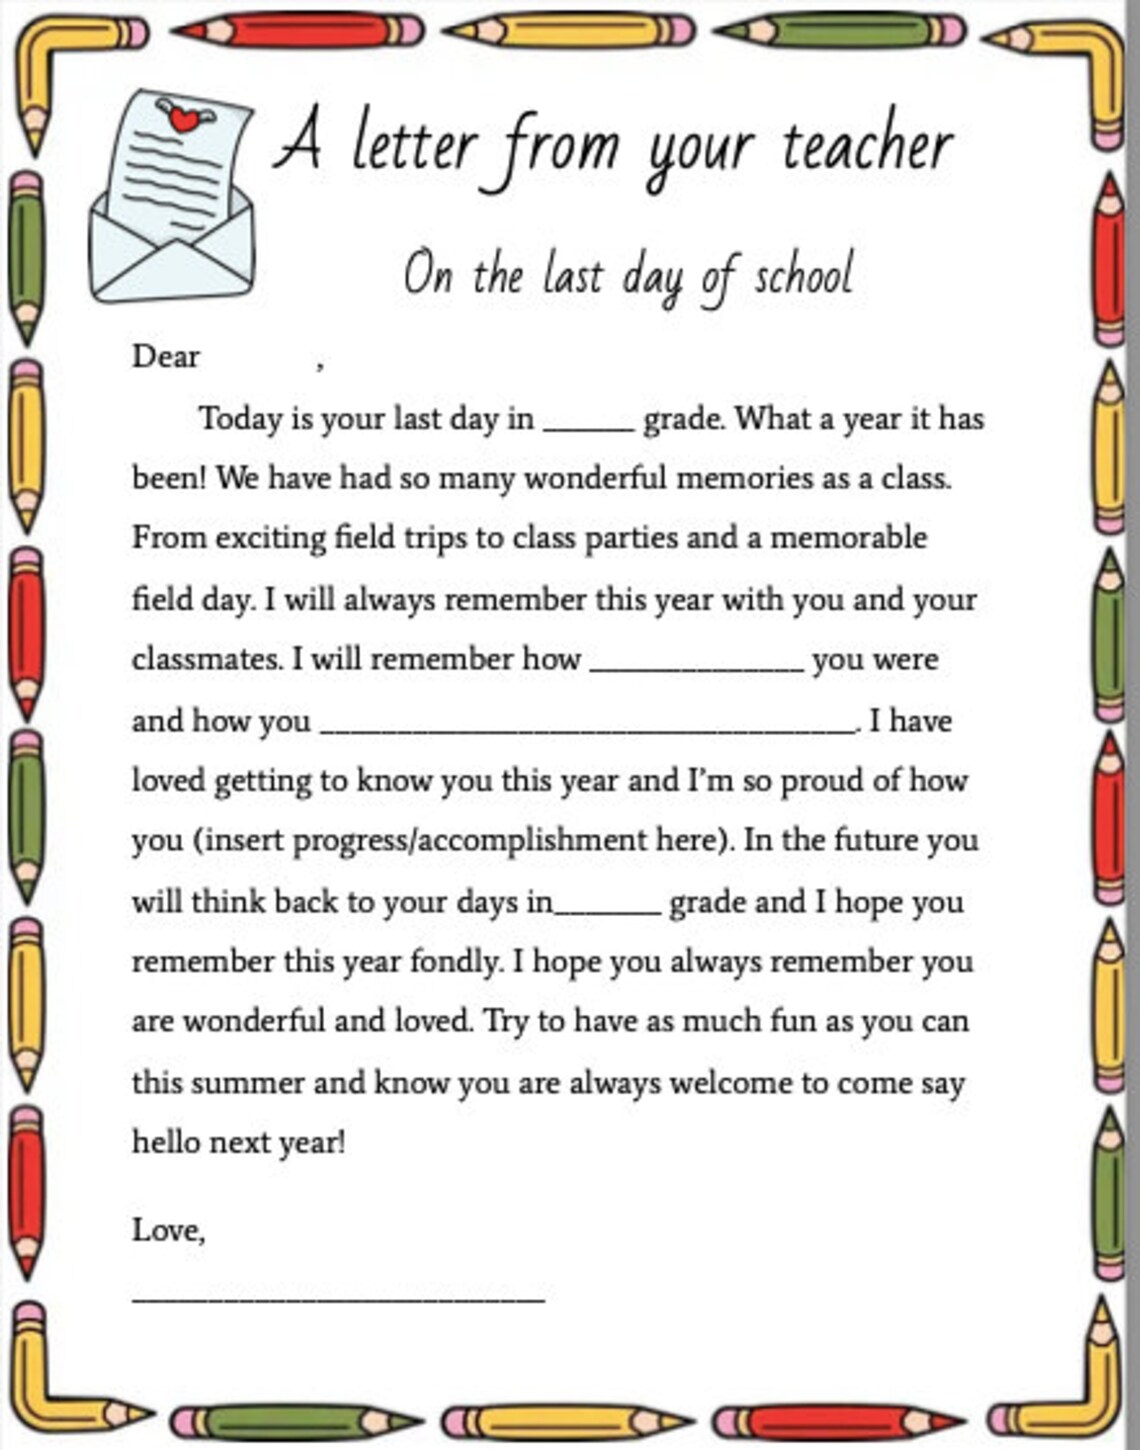 A letter from your teacher
On the last day of school
Dear          ,
Today is your last day in ______ grade. What a year it has
been! We have had so many wonderful memories as a class.
From exciting field trips to class parties and a memorable
field day. I will always remember this year with you and your
classmates. I will remember how ______________ you were
and how you ___________________________________. I have
loved getting to know you this year and I’m so proud of how
you (insert progress/accomplishment here). In the future you
will think back to your days in_______ grade and I hope you
remember this year fondly. I hope you always remember you
are wonderful and loved. Try to have as much fun as you can
this summer and know you are always welcome to come say
hello next year!
Love,
___________________________